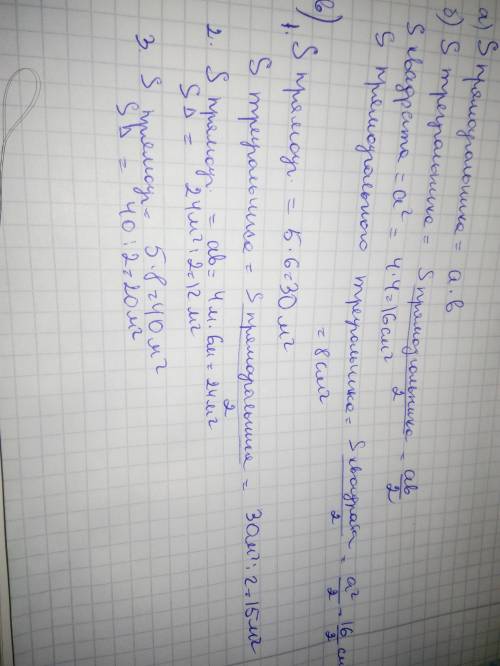 а) S прямоугольника = a · b
б) S треугольника = S прямоугольника / 2 = ab / 2
S квадрата = a² = 4·4=16см²
S прямоугольного треугольника = S квадрата / 2 = a² / 2 = 16 / 2 см
= 8см²
в)
1. S прямоуг. = 5·6=30 м²
S треугольника = S прямоугольника / 2 = 30м²:2=15м²
2. S прямоуг. = ab= 4м·6м=24м²
S∆ = 24м²:2=12 м²
3. S прямоуг= 5·8=40 м²
S∆ = 40:2=20м²